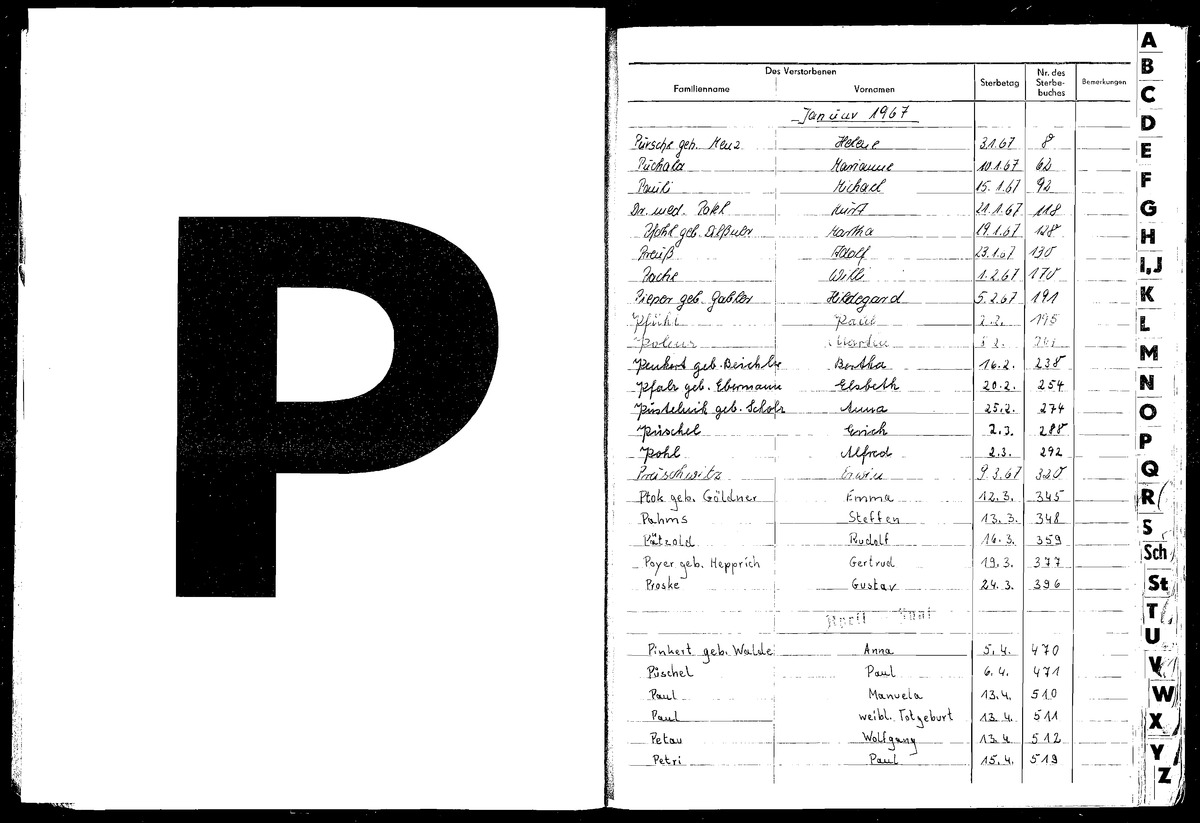 P
Des Verstorbenen
Familienname Vornamen Sterbetag Nr. des Sterbe-buches Bemerkungen
Januar 1967
Pürsche geb. Menz Helene 3.1.67 8
Puchala Marianne 10.1.67 62
Pauli Michael 15.1.67 92
Dr. med. Pohl Kurt 21.1.67 118
Pfohl geb. Martha 19.1.67 128
Preuß Adolf 23.1.67 130
Pache Willi 1.2.67 170
Pieper geb. Gabler Hildegard 5.2.67 191
Pfühl Paul 2.2. 195
Martha
Penkert geb. Beichler Bertha 16.2. 238
Pfalz geb. Ebermann Elsbeth 20.2. 254
Pustelnik geb. Scholz Anna 25.2. 274
Püschel Erich 2.3. 288
Pohl Alfred 2.3. 292
Preuschwitz Erwin 9.3.67 320
Ptok geb. Göldner Emma 12.3. 345
Pahms Steffen 13.3. 348
Pätzold Rudolf 16.3. 359
Poyer geb. Hepprich Gertrud 19.3. 377
Proske Gustav 24.3. 396
April
Pinkert geb. Walde Anna 5.4. 470
Püschel Paul 6.4. 471
Paul Manuela 13.4. 510
Paul weibl. Totgeburt 13.4. 511
Petau Wolfgang 13.4. 512
Petri Paul 15.4. 519
A
B
C
D
E
F
G
H
I,J
K
L
M
N
O
P
Q
R
S
Sch
St
T
U
V
W
X
Y
Z